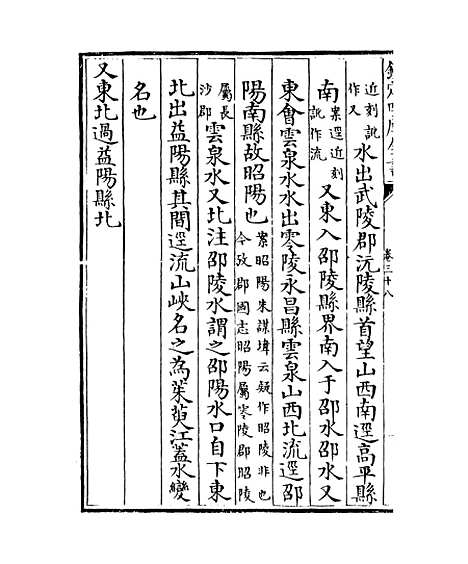 欽定四庫全書
卷三十八
近刻訛作又水出武陵郡沅陵縣首望山西南逕高平縣
南案逕近刻訛作流又東入邵陵縣界南入于邵水邵水又
東會雲泉水水出零陵永昌縣雲泉山西北流逕邵
陽南縣故昭陽也案昭陽朱謀㙔云疑作昭陵非也今攷郡國志昭陽屬零陵郡昭陵
屬長沙郡雲泉水又北注邵陵水謂之邵陽水口自下東
北出益陽縣其間逕流山峽名之為茱萸江蓋水變
名也
又東北過益陽縣北